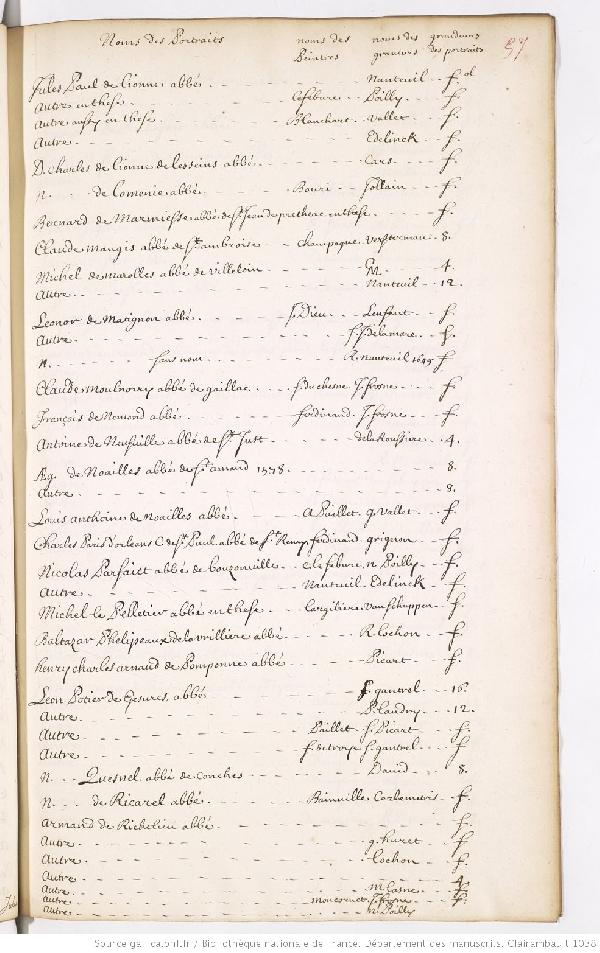 Noms des Portraits noms des Peintres noms des graveurs grandeurs des portraits 97
Jules Paul de Lionne abbé Nanteuil fol
Autre en these Lefebure Poilly f.
Autre aussy en these Blanchart Vallet f.
Autre Edelinck f.
D. Charles de Lionne de Lesseins abbé Cars f.
N. de Lomenie abbé Bouri Jollain f.
Bernard de Marmiesse abbé de St Jean en these f.
Claude Maugis abbé de St Ambroise Champagne Vorsterman 8.
Michel de Marolles abbé de Villeloin M. 4.
Autre Nanteuil 12.
Leonor de Matignon abbé S. Dieu Lenfant f.
Autre f. Delamare f.
N. sans nom R. Nanteuil 1649 f
Claude Moulnorry abbé de gaillac f. duchesne J. frosne f.
François de Nesmond abbé ferdinand J. frosne f.
Antoine de Neufuille abbé de St Just de la Roussiere 4.
Æg. de Noailles abbé de St amand 1578 8.
Autre 8.
Louis anthoine de Noailles abbé A Paillet g. Vallet f.
Charles Paris d'orleans C. de St Paul abbé de St Remy ferdinand grignon f.
Nicolas Parfaict abbé de bouzonville C. Lefebure N. Poilly f.
Autre Nanteuil Edelinck f
Michel le Pelletier abbé en these Largiliere Vanschuppen f.
Baltazar Phelipeaux de la vrilliere abbé R. Lochon f.
henry charles arnaud de Pomponne abbé Picart f.
Leon Potier de Gesvres, abbé f. gantrel 16.
Autre P. Landry 12.
Autre Paillet f. Picart f.
Autre f. de troye f. gantrel f
N. Quesnel abbé de conches David 8.
N. de Ricarel abbé f.
Armand de Richelieu abbé f.
Autre g. huret f
Autre Lochon f.
Autre 4
Autre m. Lasne f.
Autre moncornet J. frosne f.
Autre N. Poilly
Source gallica.bnf.fr / Bibliothèque nationale de France. Département des manuscrits. Clairambault 1038